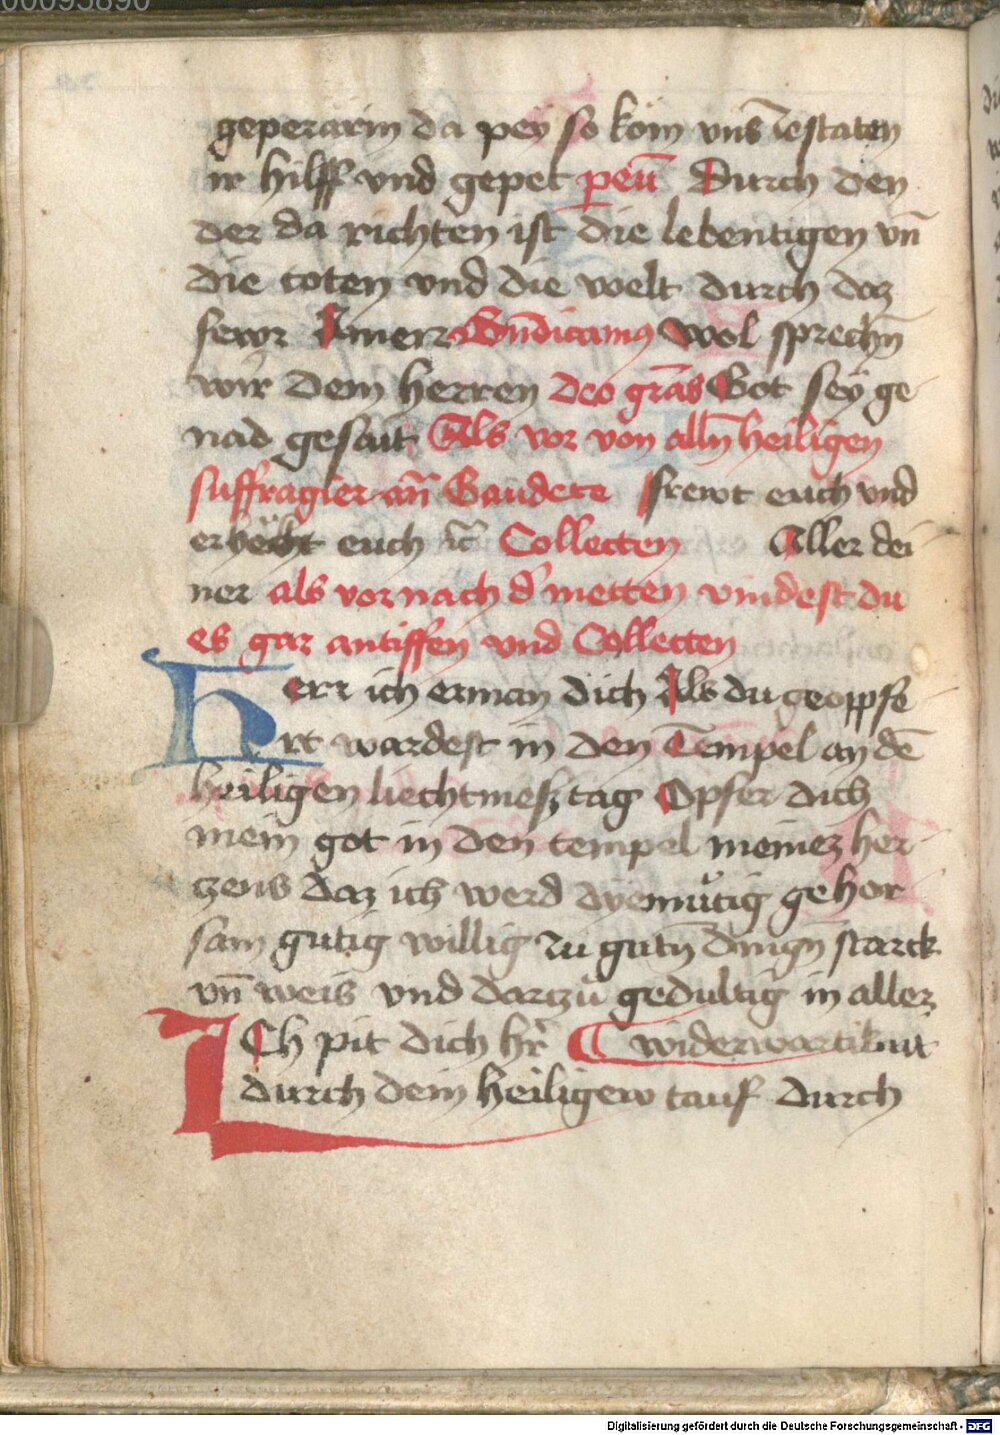 00095890
geperarin da peÿ so köm vns zestaten
ir hilff vnd gepet peñ Durch den
der da richten ist die lebentigen vñ
die toten vnd die welt durch daz
fewr Amen Bñdicamus Wol sprechñ
wir dem herren deo grãs Got seÿ ge
nad gesait Als vor von allñ heiligen
suffragier añ Gaudete frewt euch vnd
euch ꝛc̃ Collecten Aller dei
ner als vor nach d' metten vindest du
es gar antiffen vnd Collecten
Herr ich erman dich Als du geoppfe
rt wardest in den Tempel an dẽ
heiligen liechtmeß tag Opfer dich
mein got in den tempel meinez her
zens daz ich werd dyemůtig gehor
sam gutig willig zu gutñ dingñ starck
vñ weis vnd darczů gedultig in aller
Ich pit dich hr̃ widerwartikait
durch dein heiligew tauf durch
Digitalisierung gefördert durch die Deutsche Forschungsgemeinschaft - DFG